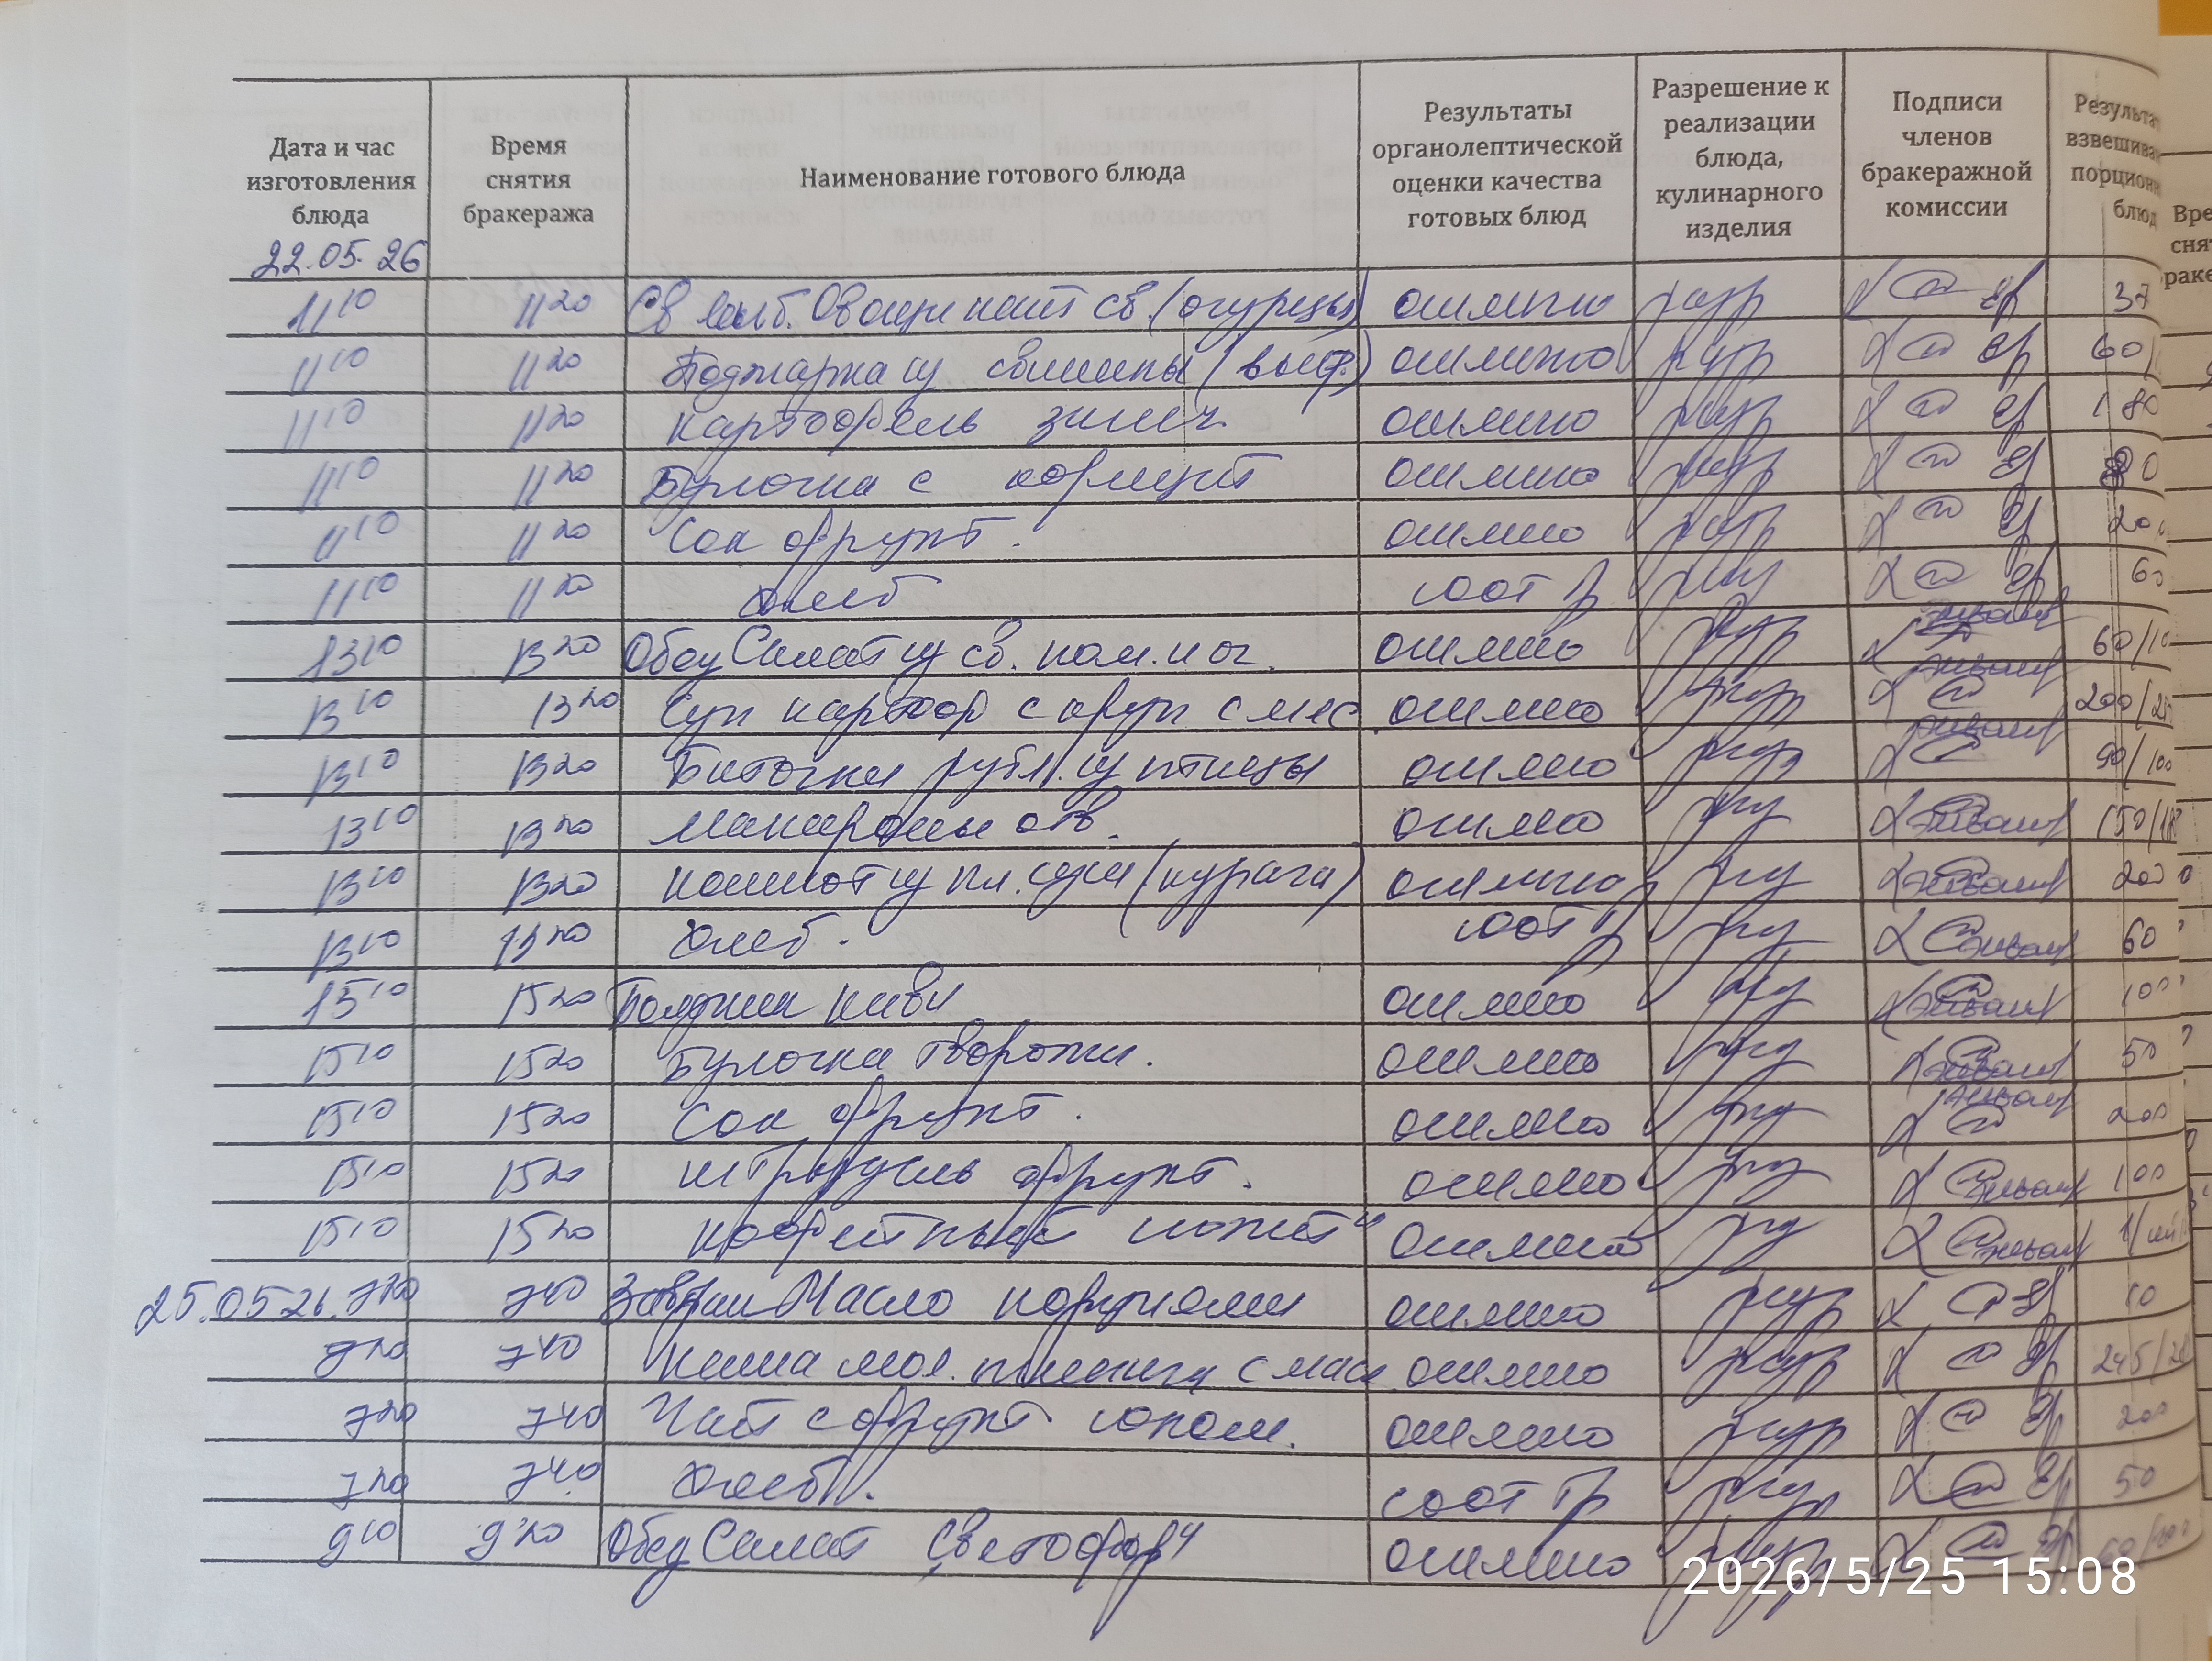 Дата и час изготовления блюда
Время снятия бракеража
Наименование готового блюда
Результаты органолептической оценки качества готовых блюд
Разрешение к реализации блюда, кулинарного изделия
Подписи членов бракеражной комиссии
Результат взвешива порционн блюд
Вре
сня
раке
22.05.26
11 10 11 20 Овощи нат св. (огурцы) отлично разр 37
11 10 11 20 Поджарка из свинины отлично разр 60/
11 10 11 20 картофель запеч отлично разр 180
11 10 11 20 Булочка с отлично разр
11 10 11 20 Сок фрукт. отлично разр 200
11 10 11 20 хлеб соот тр 60
13 10 13 20 Обед Салат из св. пом. и ог. отлично разр 60/10
13 10 13 20 Суп картоф с круп с мяс отлично разр 200/
13 10 13 20 Биточки рубл. из птицы отлично разр 90/100
13 10 13 20 макароны отв. отлично 150/
13 10 13 20 компот из пл. суш (курага) отлично 200
13 10 13 20 хлеб. соот тр 60
15 10 15 20 Полдник киви отлично 100
15 10 15 20 Булочка творожн. отлично 50
15 10 15 20 Сок фрукт. отлично 200
15 10 15 20 штрудель фрукт. отлично 100
15 10 15 20 отлично 1/
25.05.26. 7 20 7 40 Завтрак Масло порциями отлично разр 10
7 20 7 40 каша мол. пшенича с мас отлично разр 245/
7 20 7 40 Чай с фрукт соком. отлично разр 200
7 20 7 40 хлеб. соот тр разр 50
9 10 9 20 Обед Салат Светофор отлично разр
2026/5/25 15:08